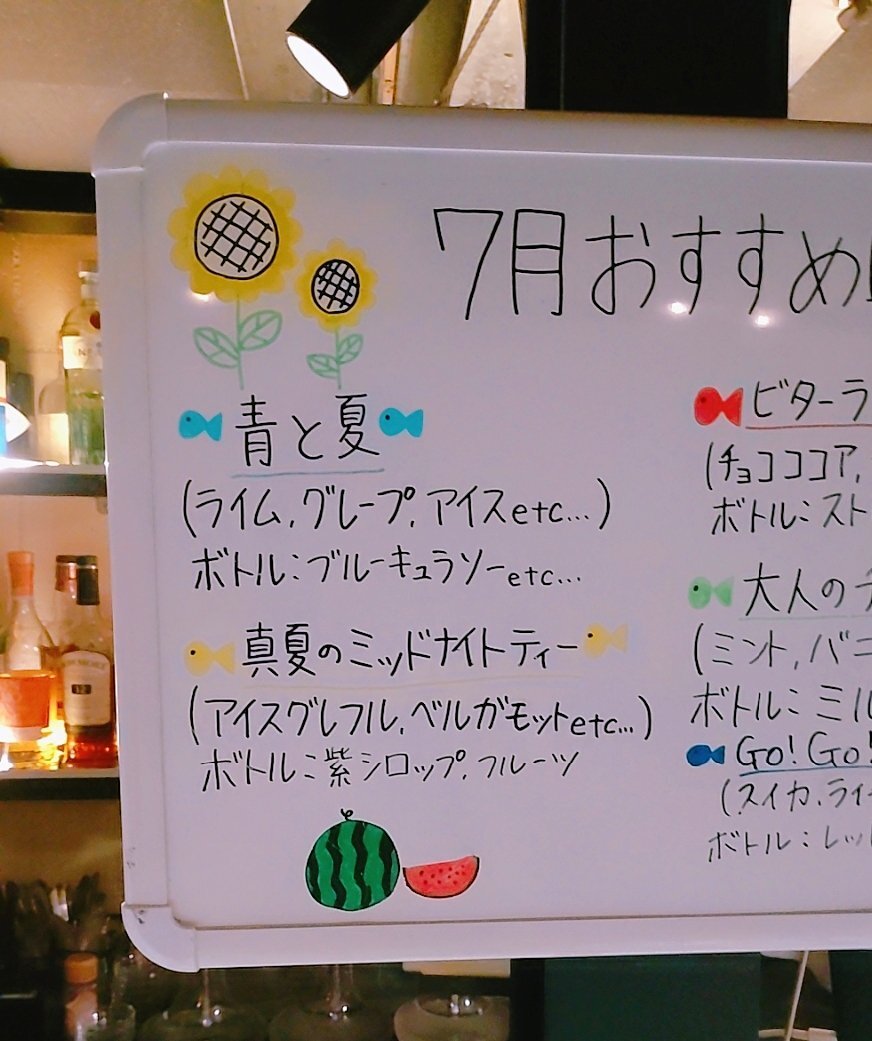 7月おすすめ
青と夏
(ライム,グレープ,アイスetc...)
ボトル:ブルーキュラソーetc...
真夏のミッドナイトティー
(アイスグレフル,ベルガモットetc...)
ボトル:紫シロップ,フルーツ
ビターラ
(チョコココア,
ボトル:スト
大人の
(ミント,バニ
ボトル:ミル
Go!Go!
(スイカ,ライ
ボトル:レッ